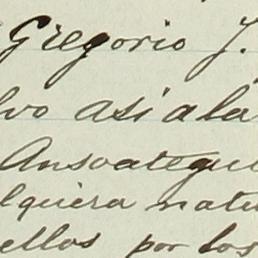 Gregorio J.
lvo asi a la
Ansoategui
lquiera natu
ellos por los